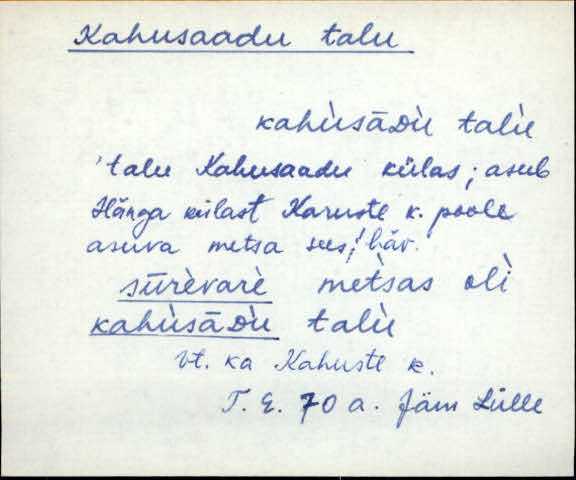 Kahusaadu talu
kahùsāᴅù talù
'talu Kahusaadu külas; asub
Hänga külast Karuste k. poole
asuva metsa sees;' häv.
sūrèvarè metsas oli
kahùsāᴅù talù
Vt. ka Kahuste k.
T. E. 70 a. Jäm Lülle